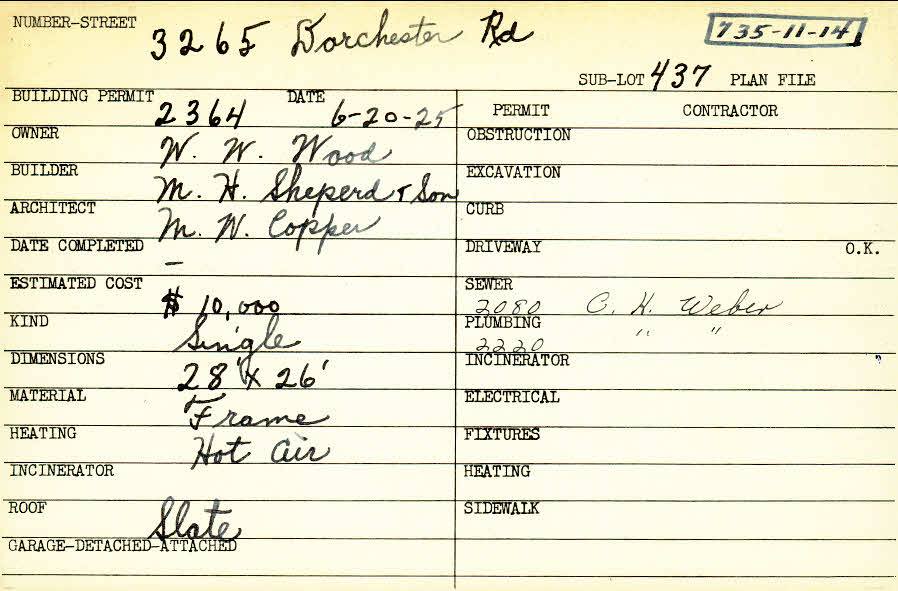 NUMBER-STREET 3265 Dorchester Rd 735-11-14
SUB-LOT 437 PLAN FILE
BUILDING PERMIT 2364 DATE 6-20-25 PERMIT CONTRACTOR
OWNER W. W. Wood OBSTRUCTION
BUILDER M. H. Sheperd & Son EXCAVATION
ARCHITECT M. W. Copper CURB
DATE COMPLETED - DRIVEWAY O.K.
ESTIMATED COST $ 10,000 SEWER 2080 C. H. Weber
KIND Single PLUMBING 2220 " "
DIMENSIONS 28' x 26' INCINERATOR "
MATERIAL Frame ELECTRICAL
HEATING Hot Air FIXTURES
INCINERATOR HEATING
ROOF Slate SIDEWALK
GARAGE-DETACHED-ATTACHED